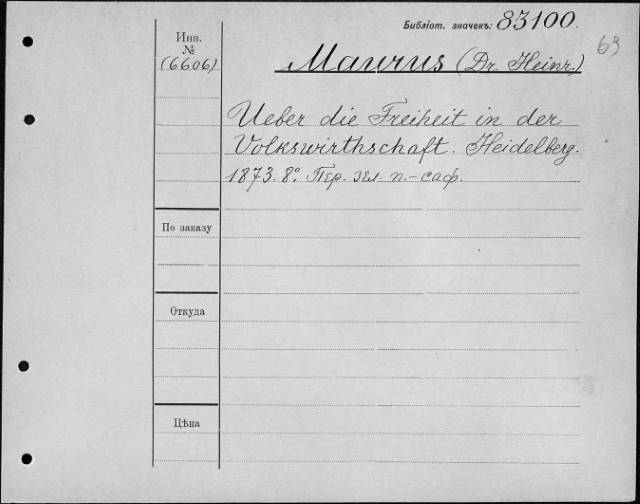 Библіот. значекъ: 83100.
63
Инв.
№
(6606)
Maurus (Dr. Heinr.)
Ueber die Freiheit in der
Volkswirthschaft. Heidelberg.
1873. 8°. Пер. зел. п.-саф.
По заказу
Откуда
Цѣна